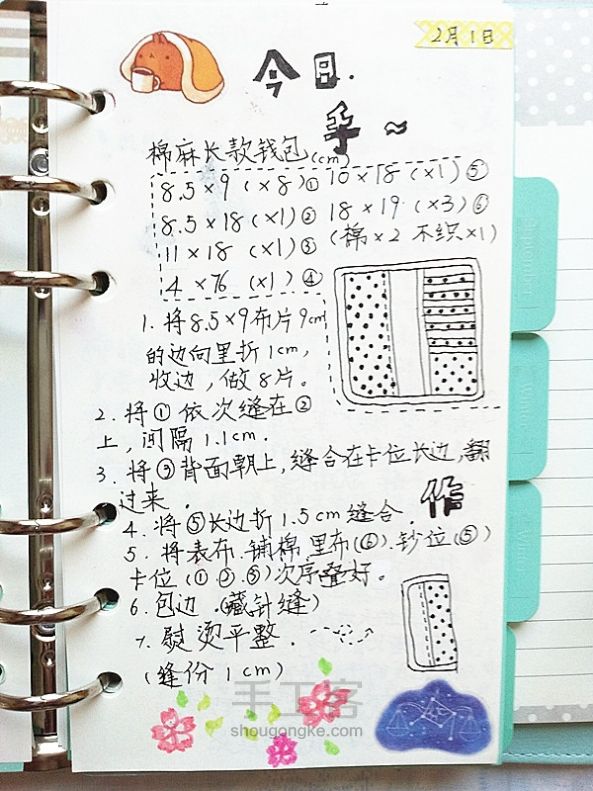 2月1日
今日.
手~
棉麻长款钱包(cm)
8.5×9 (×8)① 10×18 (×1)⑤
8.5×18 (×1)② 18×19 (×3)⑥
11×18 (×1)③ (棉×2 不织×1)
4×76 (×1)④
1. 将8.5×9布片9cm
的边向里折1cm,
收边,做8片。
2. 将①依次缝在②
上,间隔1.1cm.
3. 将③背面朝上,缝合在卡位长边,翻
过来.
作
4. 将⑤长边折1.5cm缝合.
5. 将表布.铺棉.里布(⑥).钞位(⑤)
卡位(①②③)次序叠好。
6. 包边.(藏针缝)
7. 熨烫平整.
(缝份1cm)
手工客
shougongke.com
September
Winter
Winter